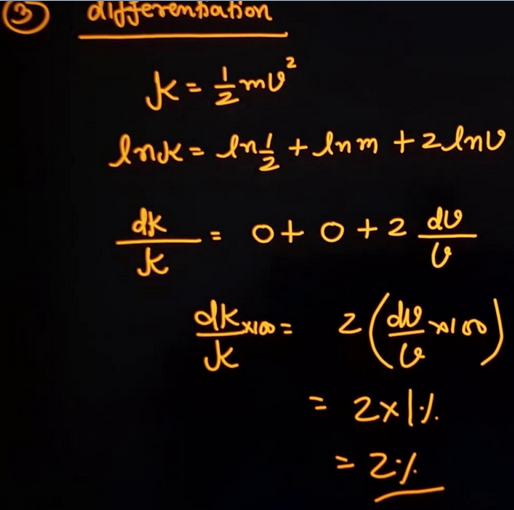 ③ differentiation
K = 1/2 mv²
lnK = ln 1/2 + ln m + 2 ln v
dK/K = 0 + 0 + 2 dv/v
dK/K ×100 = 2 (dv/v ×100)
= 2×1%
= 2%